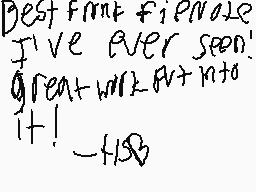 Best frnk flipnote
I've ever seen!
great work put into
it!